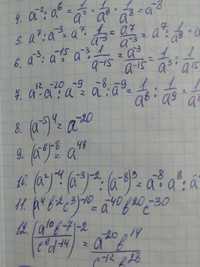 4. a⁻²:a⁶ = 1/a² : 1/a⁶ = 1/a⁸ = a⁻⁸
5. a⁷:a⁻³ = a⁷ : 1/a⁻³ = a⁷/a⁻³
6. a⁻³:a⁻¹⁵ = a⁻³ : 1/a⁻¹⁵ = a⁻³/a⁻¹⁵ = 1/a³ : 1
7. a¹²·a⁻²⁰:a⁻⁹ = a⁻⁸:a⁻⁹ = 1/a⁸ : 1/a⁹ = 1
8. (a⁻⁵)⁴ = a⁻²⁰
9. (a⁻⁶)⁻⁸ = a⁴⁸
10. (a²)⁻⁴:(a⁻³)⁻²:(a⁻⁸)⁹ = a⁻⁸:a⁶:a
11. (a⁴b⁻²c³)⁻¹⁰ = a⁻⁴⁰b²⁰c⁻³⁰
12. (a¹⁰b⁻⁷/c⁶d⁻¹⁴)⁻² = a⁻²⁰b¹⁴/c⁻¹²b²⁸